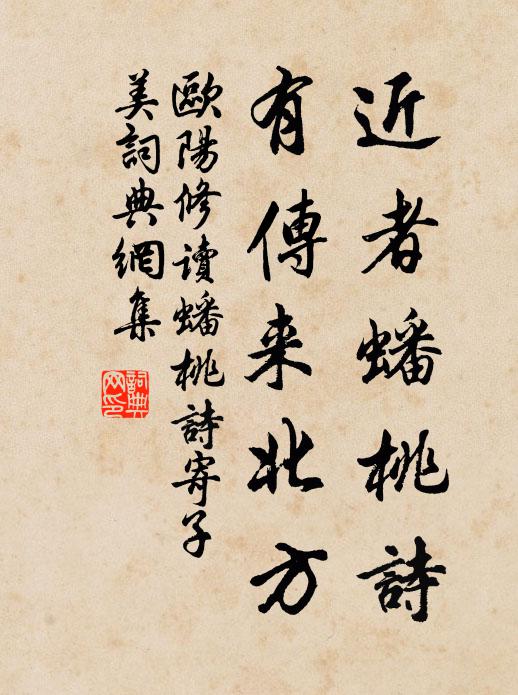 近者蟠桃詩
有傳来北方
歐陽修讀蟠桃詩寄子
美詞典網集
詞典網印